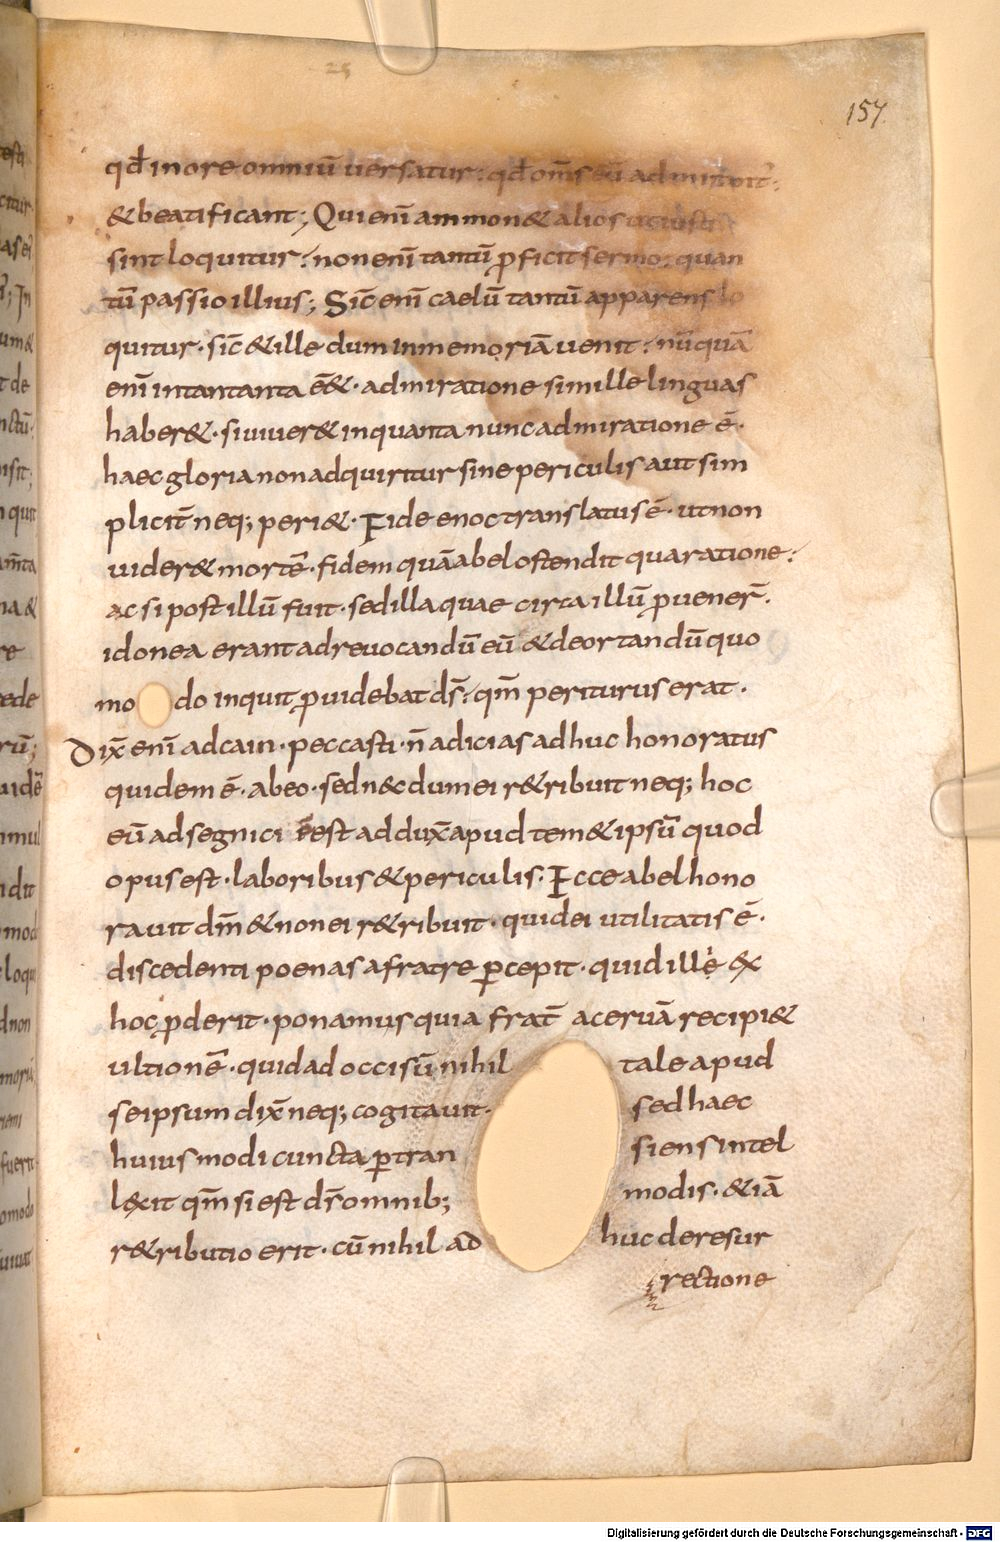 25
157.
qđ in ore omniū versatur: qđ om̄s eū admirant̄:
& beatificant; Qui enī ammon & alios
sint loquitur: non enī tantū ꝓficit sermo: quan
tū passio illius; Sic̄ enī caelū tantū apparens lo
quitur· sic̄ & ille dum in memoriā uenit: nūquā
enī in tantanta ē&· admiratione si mille linguas
haber&· si uiuer& in quanta nunc admiratione ē·
haec gloria non adquiritur sine periculis aut sim
plicit̄ neq; peri&· Fide enoc translatus ē· ut non
uider& mortē· fidem quā abel ostendit qua ratione:
ac si post illū fuit· sed illa quae circa illū ꝓuener̄·
idonea erant ad reuocandū eū & deortandū quo
mo do inquit ꝓuidebat d̄s: qm̄ periturus erat·
Dix̄ enī ad cain· peccasti· n̄ adicias adhuc honoratus
quidem ē· ab eo· sed n&c dum ei r&ribuit neq; hoc
eū ad segnici est addux̄ apud tem& ipsū quod
opus est· laboribus & periculis· Ecce abel hono
rauit dm̄ & non ei r&ribuit· quid ei utilitatis ē·
discedenti poenas a fratre ꝑcepit· quid ille ex
hoc ꝓderit· ponamus quia frat̄ aceruā recipi&
ultionē· quid ad occisū nihil tale apud
seipsum dix̄ neq; cogitauit· sed haec
huius modi cuncta ꝑtran siens intel
l&xit qm̄ si est d̄s omnib; modis· & iā
r&ributio erit· cū nihil ad huc de resur
rectione
Digitalisierung gefördert durch die Deutsche Forschungsgemeinschaft - DFG